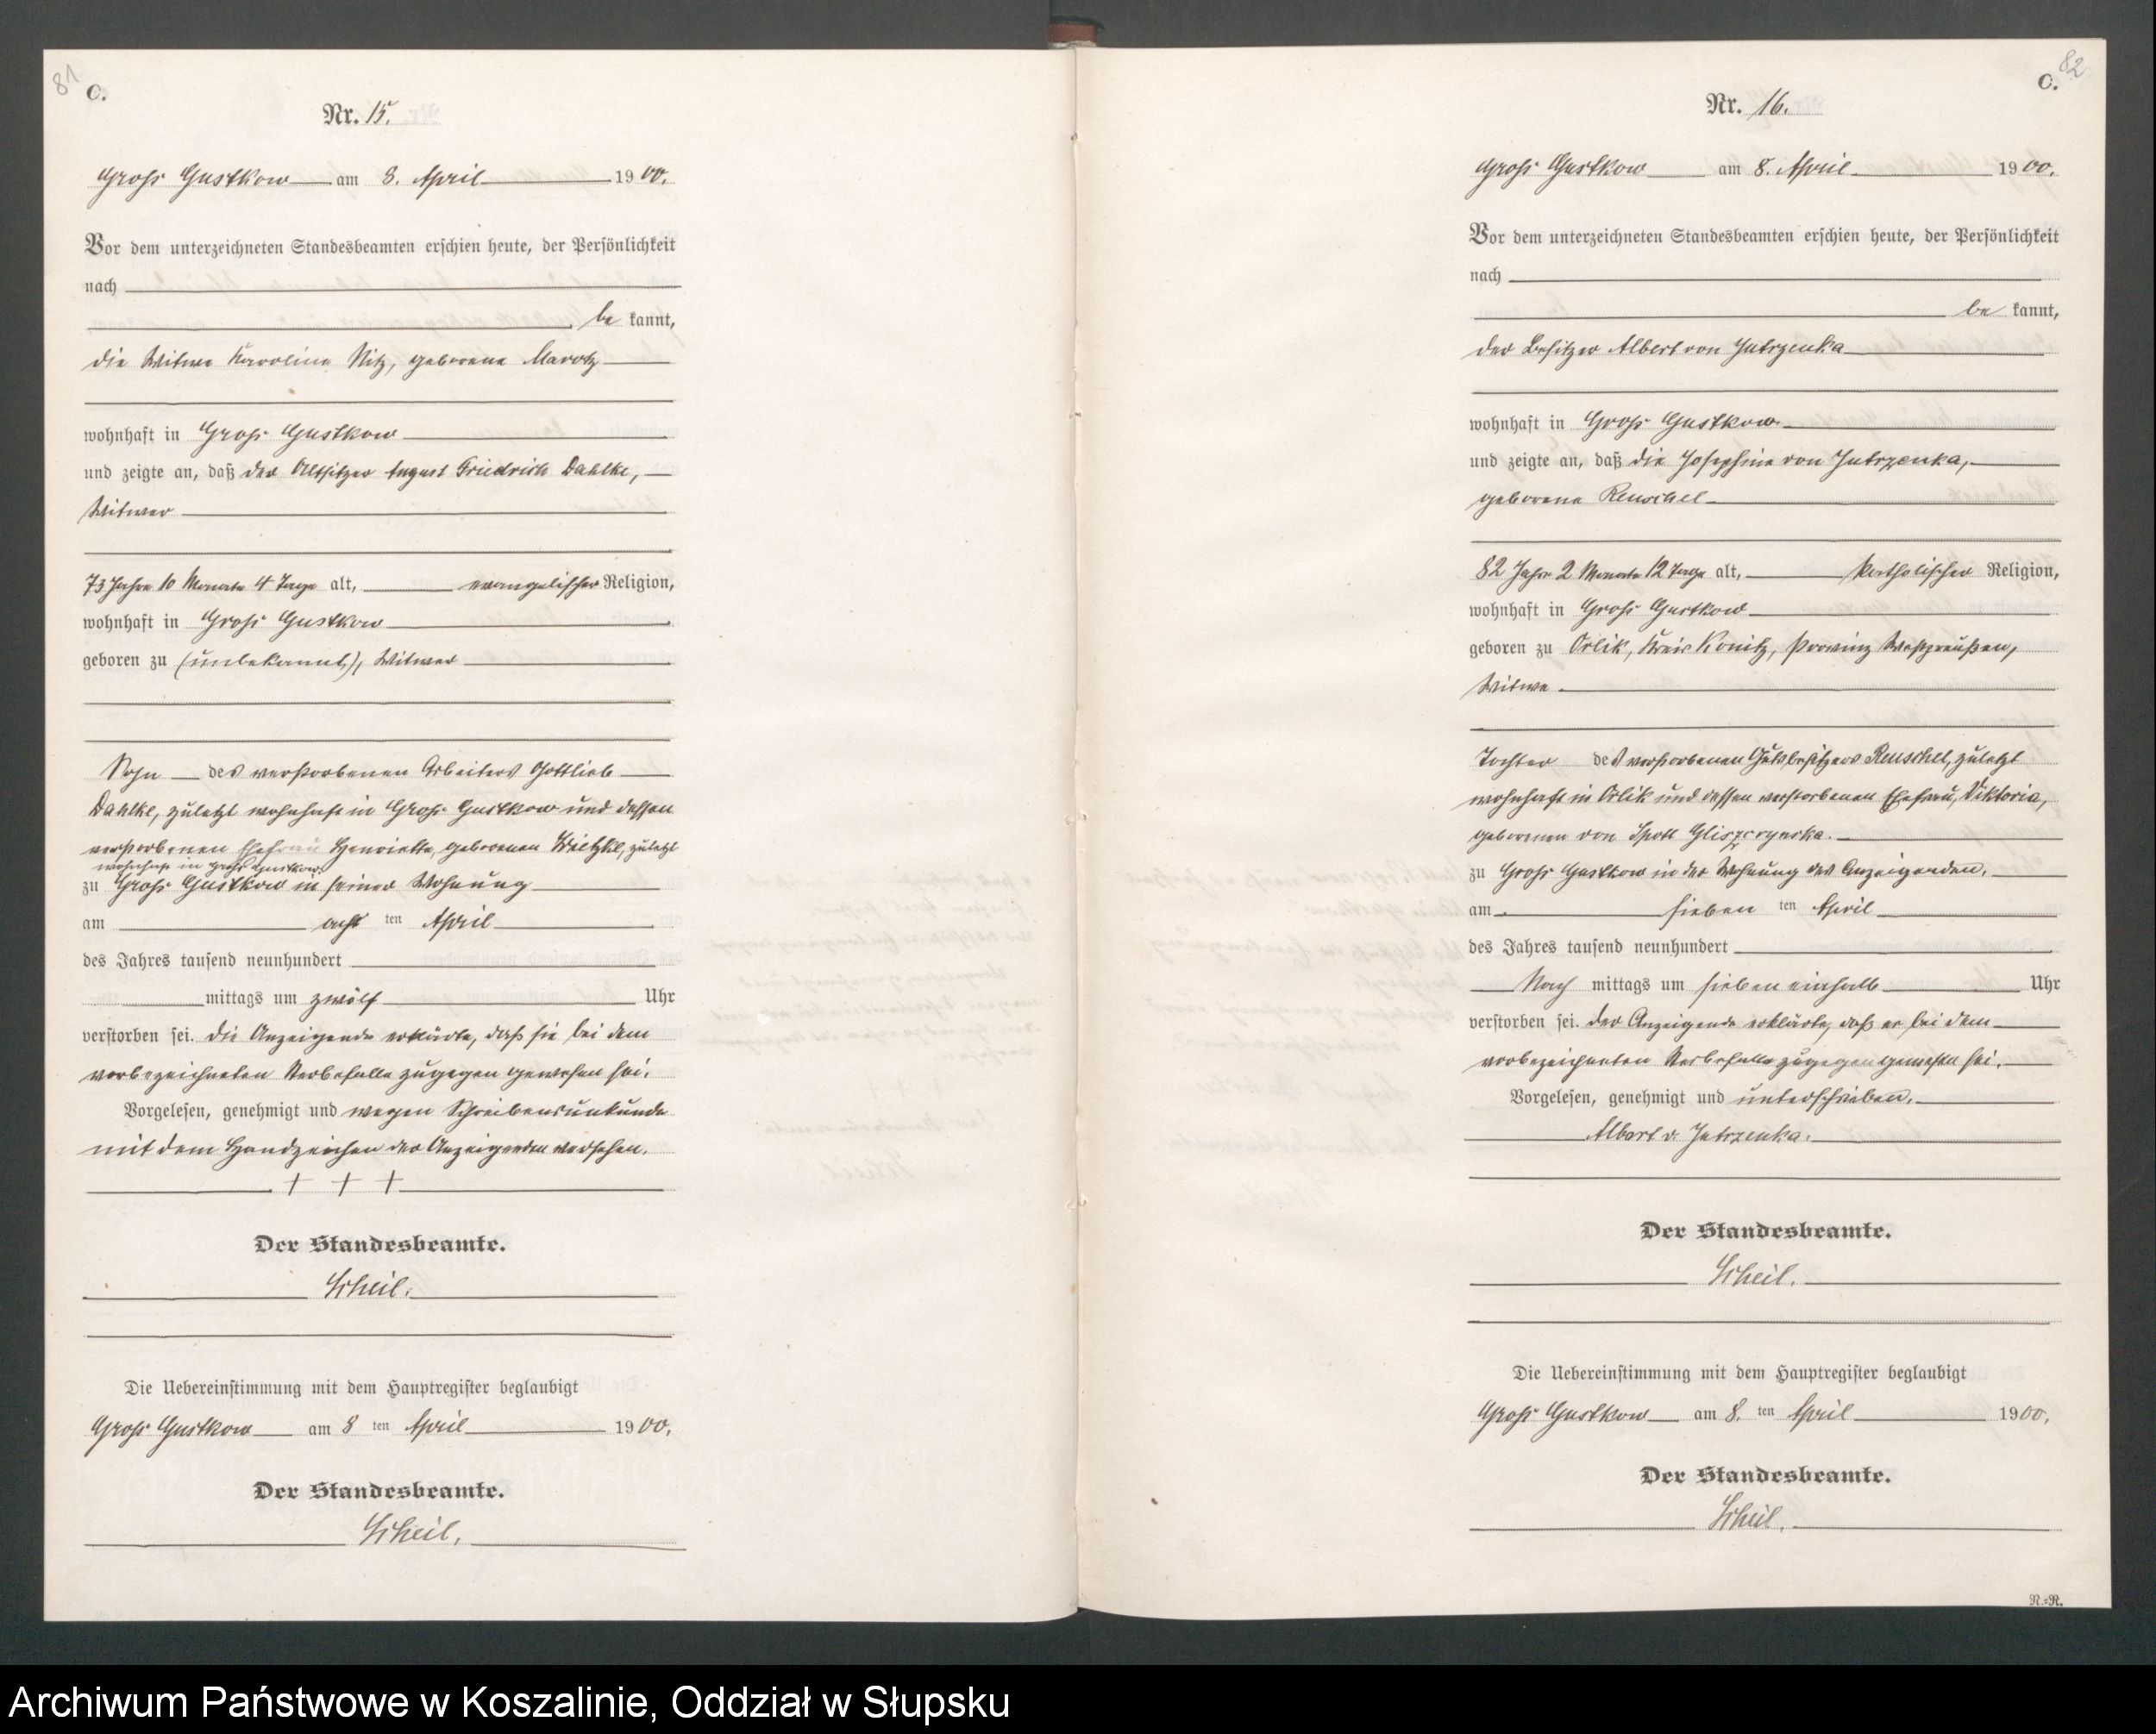 81
C.
Nr. 15.
Gross Gustkow am 8. April 1900.
Vor dem unterzeichneten Standesbeamten erschien heute, der Persönlichkeit
nach
be kannt,
die Witwe Karoline Nitz, geborene Marotz
wohnhaft in Gross Gustkow
und zeigte an, daß der Altsitzer August Friedrich Dahlke,
Witwer
73 Jahre 10 Monate 4 Tage alt, evangelischer Religion,
wohnhaft in Gross Gustkow
geboren zu (unbekannt), Witwer
Sohn des verstorbenen Arbeiters Gottlieb
Dahlke, zuletzt wohnhaft in Gross Gustkow und dessen
verstorbenen Ehefrau Henriette, geborenen zuletzt
wohnhaft in Gross Gustkow
zu Gross Gustkow in seiner Wohnung
am acht ten April
des Jahres tausend neunhundert
mittags um zwölf Uhr
verstorben sei. Die Anzeigende erklärte, daß sie bei dem
vorbezeichneten Sterbefalle zugegen gewesen sei.
Vorgelesen, genehmigt und wegen Schreibensunkunde
mit dem Handzeichen der Anzeigenden versehen.
+ + +
Der Standesbeamte.
Scheil.
Die Uebereinstimmung mit dem Hauptregister beglaubigt
Gross Gustkow am 8 ten April 1900.
Der Standesbeamte.
Scheil.
82
C.
Nr. 16.
Gross Gustkow am 8. April 1900.
Vor dem unterzeichneten Standesbeamten erschien heute, der Persönlichkeit
nach
be kannt,
der Besitzer Albert von Jutrzenka
wohnhaft in Gross Gustkow
und zeigte an, daß die Josephine von Jutrzenka,
geborene Reuschel
82 Jahre 2 Monate 12 Tage alt, katholischer Religion,
wohnhaft in Gross Gustkow
geboren zu Orlik, Kreis Konitz, Provinz Westpreußen,
Witwe.
Tochter des verstorbenen Gutsbesitzers Reuschel, zuletzt
wohnhaft in Orlik und dessen verstorbenen Ehefrau, Viktoria,
geborenen von
zu Gross Gustkow in der Wohnung des Anzeigenden.
am sieben ten April
des Jahres tausend neunhundert
Nach mittags um sieben einhalb Uhr
verstorben sei. Der Anzeigende erklärte, daß er bei dem
vorbezeichneten Sterbefalle zugegen gewesen sei.
Vorgelesen, genehmigt und unterschrieben.
Albert v. Jutrzenka.
Der Standesbeamte.
Scheil.
Die Uebereinstimmung mit dem Hauptregister beglaubigt
Gross Gustkow am 8. ten April 1900.
Der Standesbeamte.
Scheil.
N.=R.
Archiwum Państwowe w Koszalinie, Oddział w Słupsku